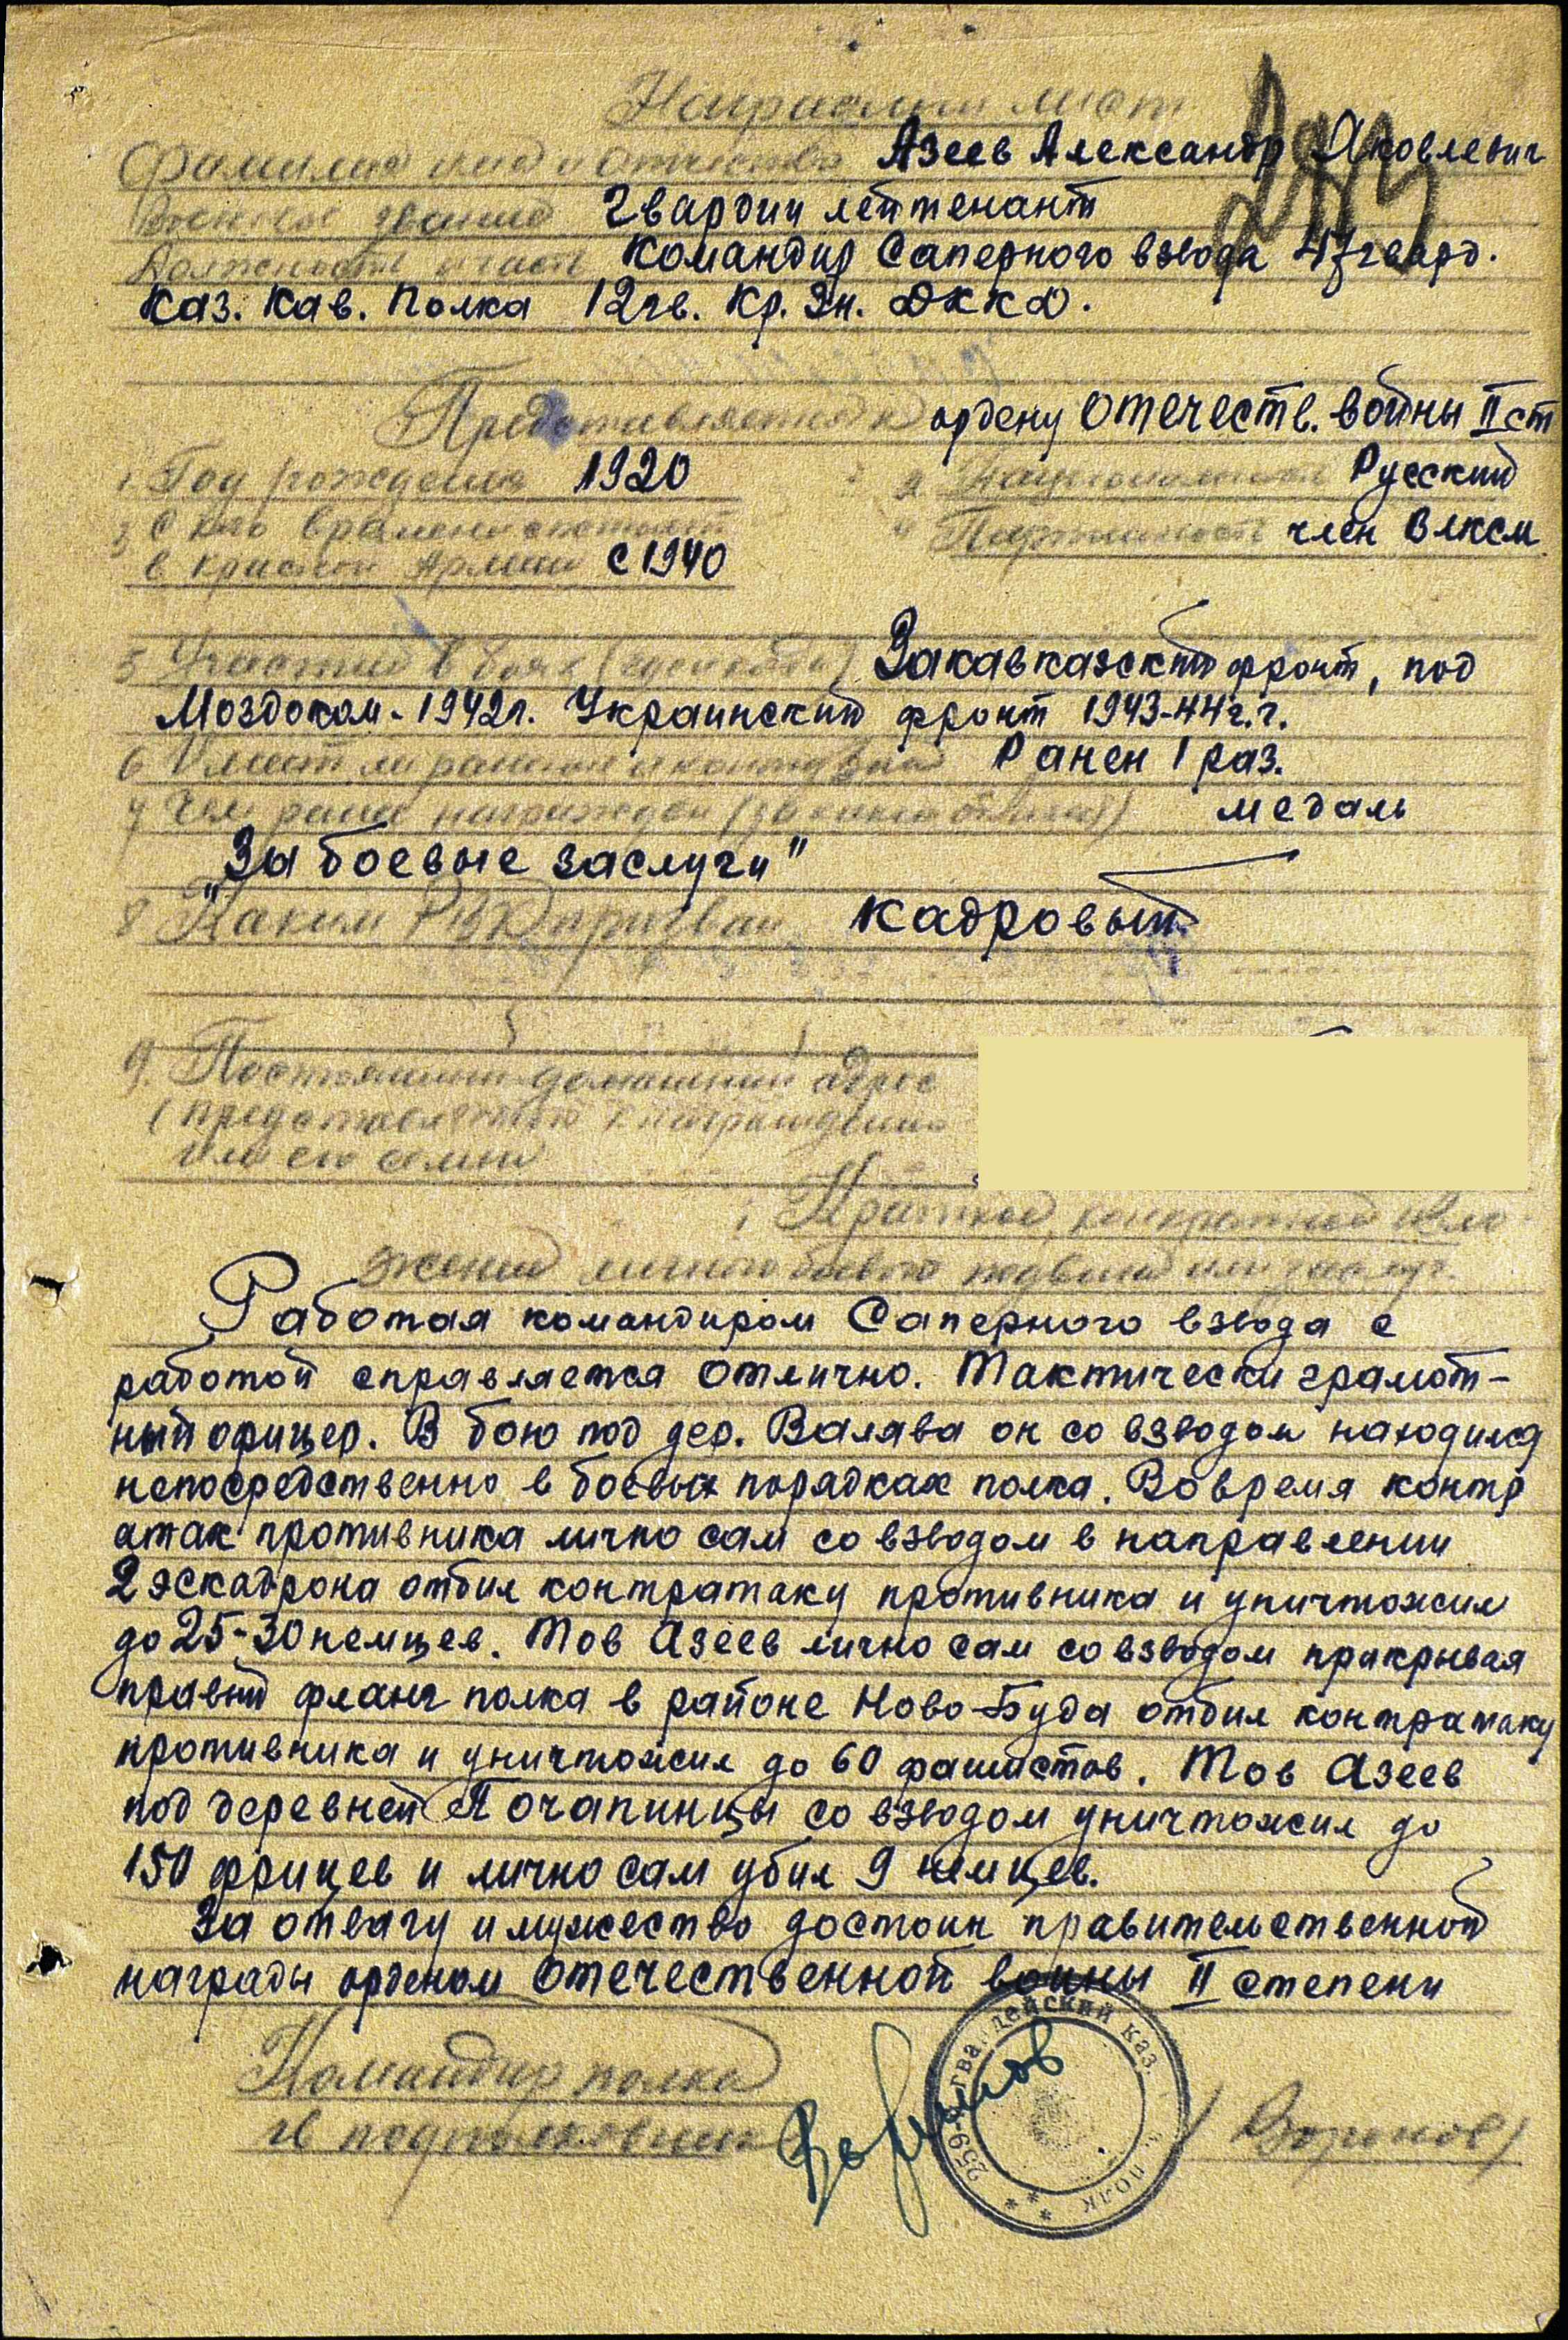 Наградной лист
Фамилия имя и отчество Азеев Александр Яковлевич
Военское звание Гвардии лейтенант
Должность часть Командир Саперного взвода 47 гвард.
Каз. Кав. Полка 12 гв. Кр. Зн. ДККД.
Представляется к ордену Отечеств. войны II ст
1. Год рождения 1920 2 Национальность Русский
3 С каго времени состоит 4 Партийность член Влксм
в красной Армии с 1940
5 Участие в боях (где и когда) Закавказский фронт, под
Моздоком - 1942 г. Украинский фронт 1943-44 г.г.
6 Имеет ли ранения и контузии Ранен 1 раз.
7 Чем ранее награжден (за какие отличия) медаль
„За боевые заслуги"
8 Каким РВК призван кадровый
9. Постоянный домашний адрес
(представляемого к награждению
или его семьи
Краткое, конкретное изло-
жение личного боевого подвига или заслуг.
Работая командиром Саперного взвода с
работой справляется отлично. Тактически грамот-
ный офицер. В бою под дер. Валява он со взводом находился
непосредственно в боевых порядках полка. Во время контр
атак противника лично сам со взводом в направлении
2 эскадрона отбил контратаку противника и уничтожил
до 25-30 немцев. Тов Азеев лично сам со взводом прикрывая
правый фланг полка в районе Ново-Буда отбил контратаку
противника и уничтожил до 60 фашистов. Тов Азеев
под деревней Почапинцы со взводом уничтожил до
150 фрицев и лично сам убил 9 немцев.
За отвагу и мужество достоин правительственной
награды орденом Отечественной войны II степени
Командир полка
гв подполковник Воронов / Воронов /
259 гвардейский каз. полк